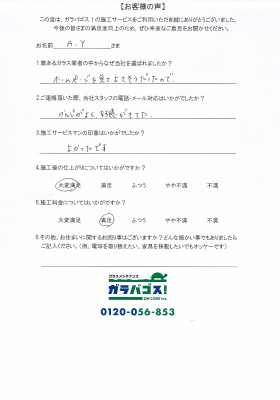 【お客様の声】
この度は、ガラパゴス！の施工サービスをご利用いただき誠にありがとうございました。
今後の皆さまの満足度向上のため、ぜひ率直なご意見をお聞かせください。
お名前 A.Y さま
1.数あるガラス業者の中からなぜ当社を選ばれましたか？
ホームページを見てよさそうだったので
2.ご連絡頂いた際、当社スタッフの電話・メール対応はいかがでしたか？
かんじがよく、好感がもてた.
3.施工サービスマンの印象はいかがでしたか？
よかったです.
4.施工後の仕上がりについてはいかがですか？
大変満足 満足 ふつう やや不満 不満
5.施工料金についてはいかがですか？
大変満足 満足 ふつう やや不満 不満
6.その他、お住まいに関するお困り事はございますか？どんな細かい事でもありましたら
ご記入ください。（例、電球を取り替えたい、家具を移動したいでもオッケーです）
ガラスメンテナンス
ガラパゴス！
ON CODE Inc.
0120-056-853